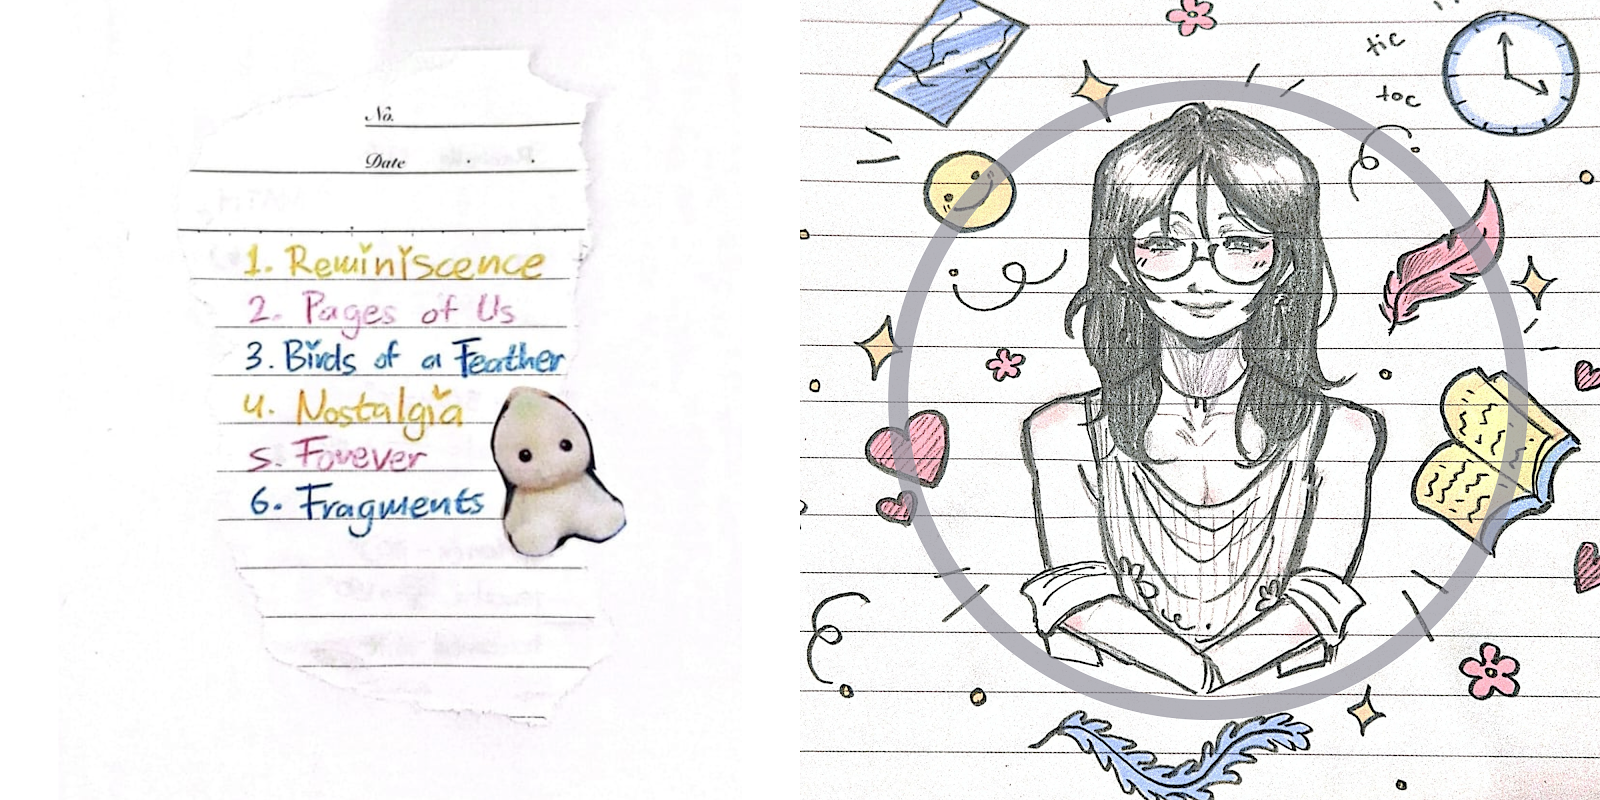 No.
Date
1. Reminiscence
2. Pages of Us
3. Birds of a Feather
4. Nostalgia
5. Forever
6. Fragments
tic
toc